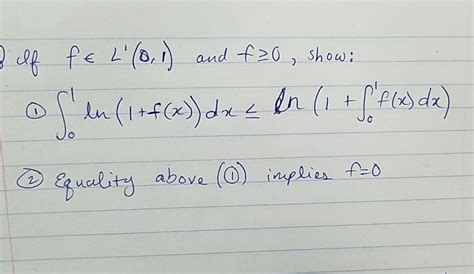 If f ∈ L¹(0,1) and f ≥ 0, show:
① ∫₀¹ ln(1+f(x))dx ≤ ln(1 + ∫₀¹ f(x)dx)
② Equality above (①) implies f=0